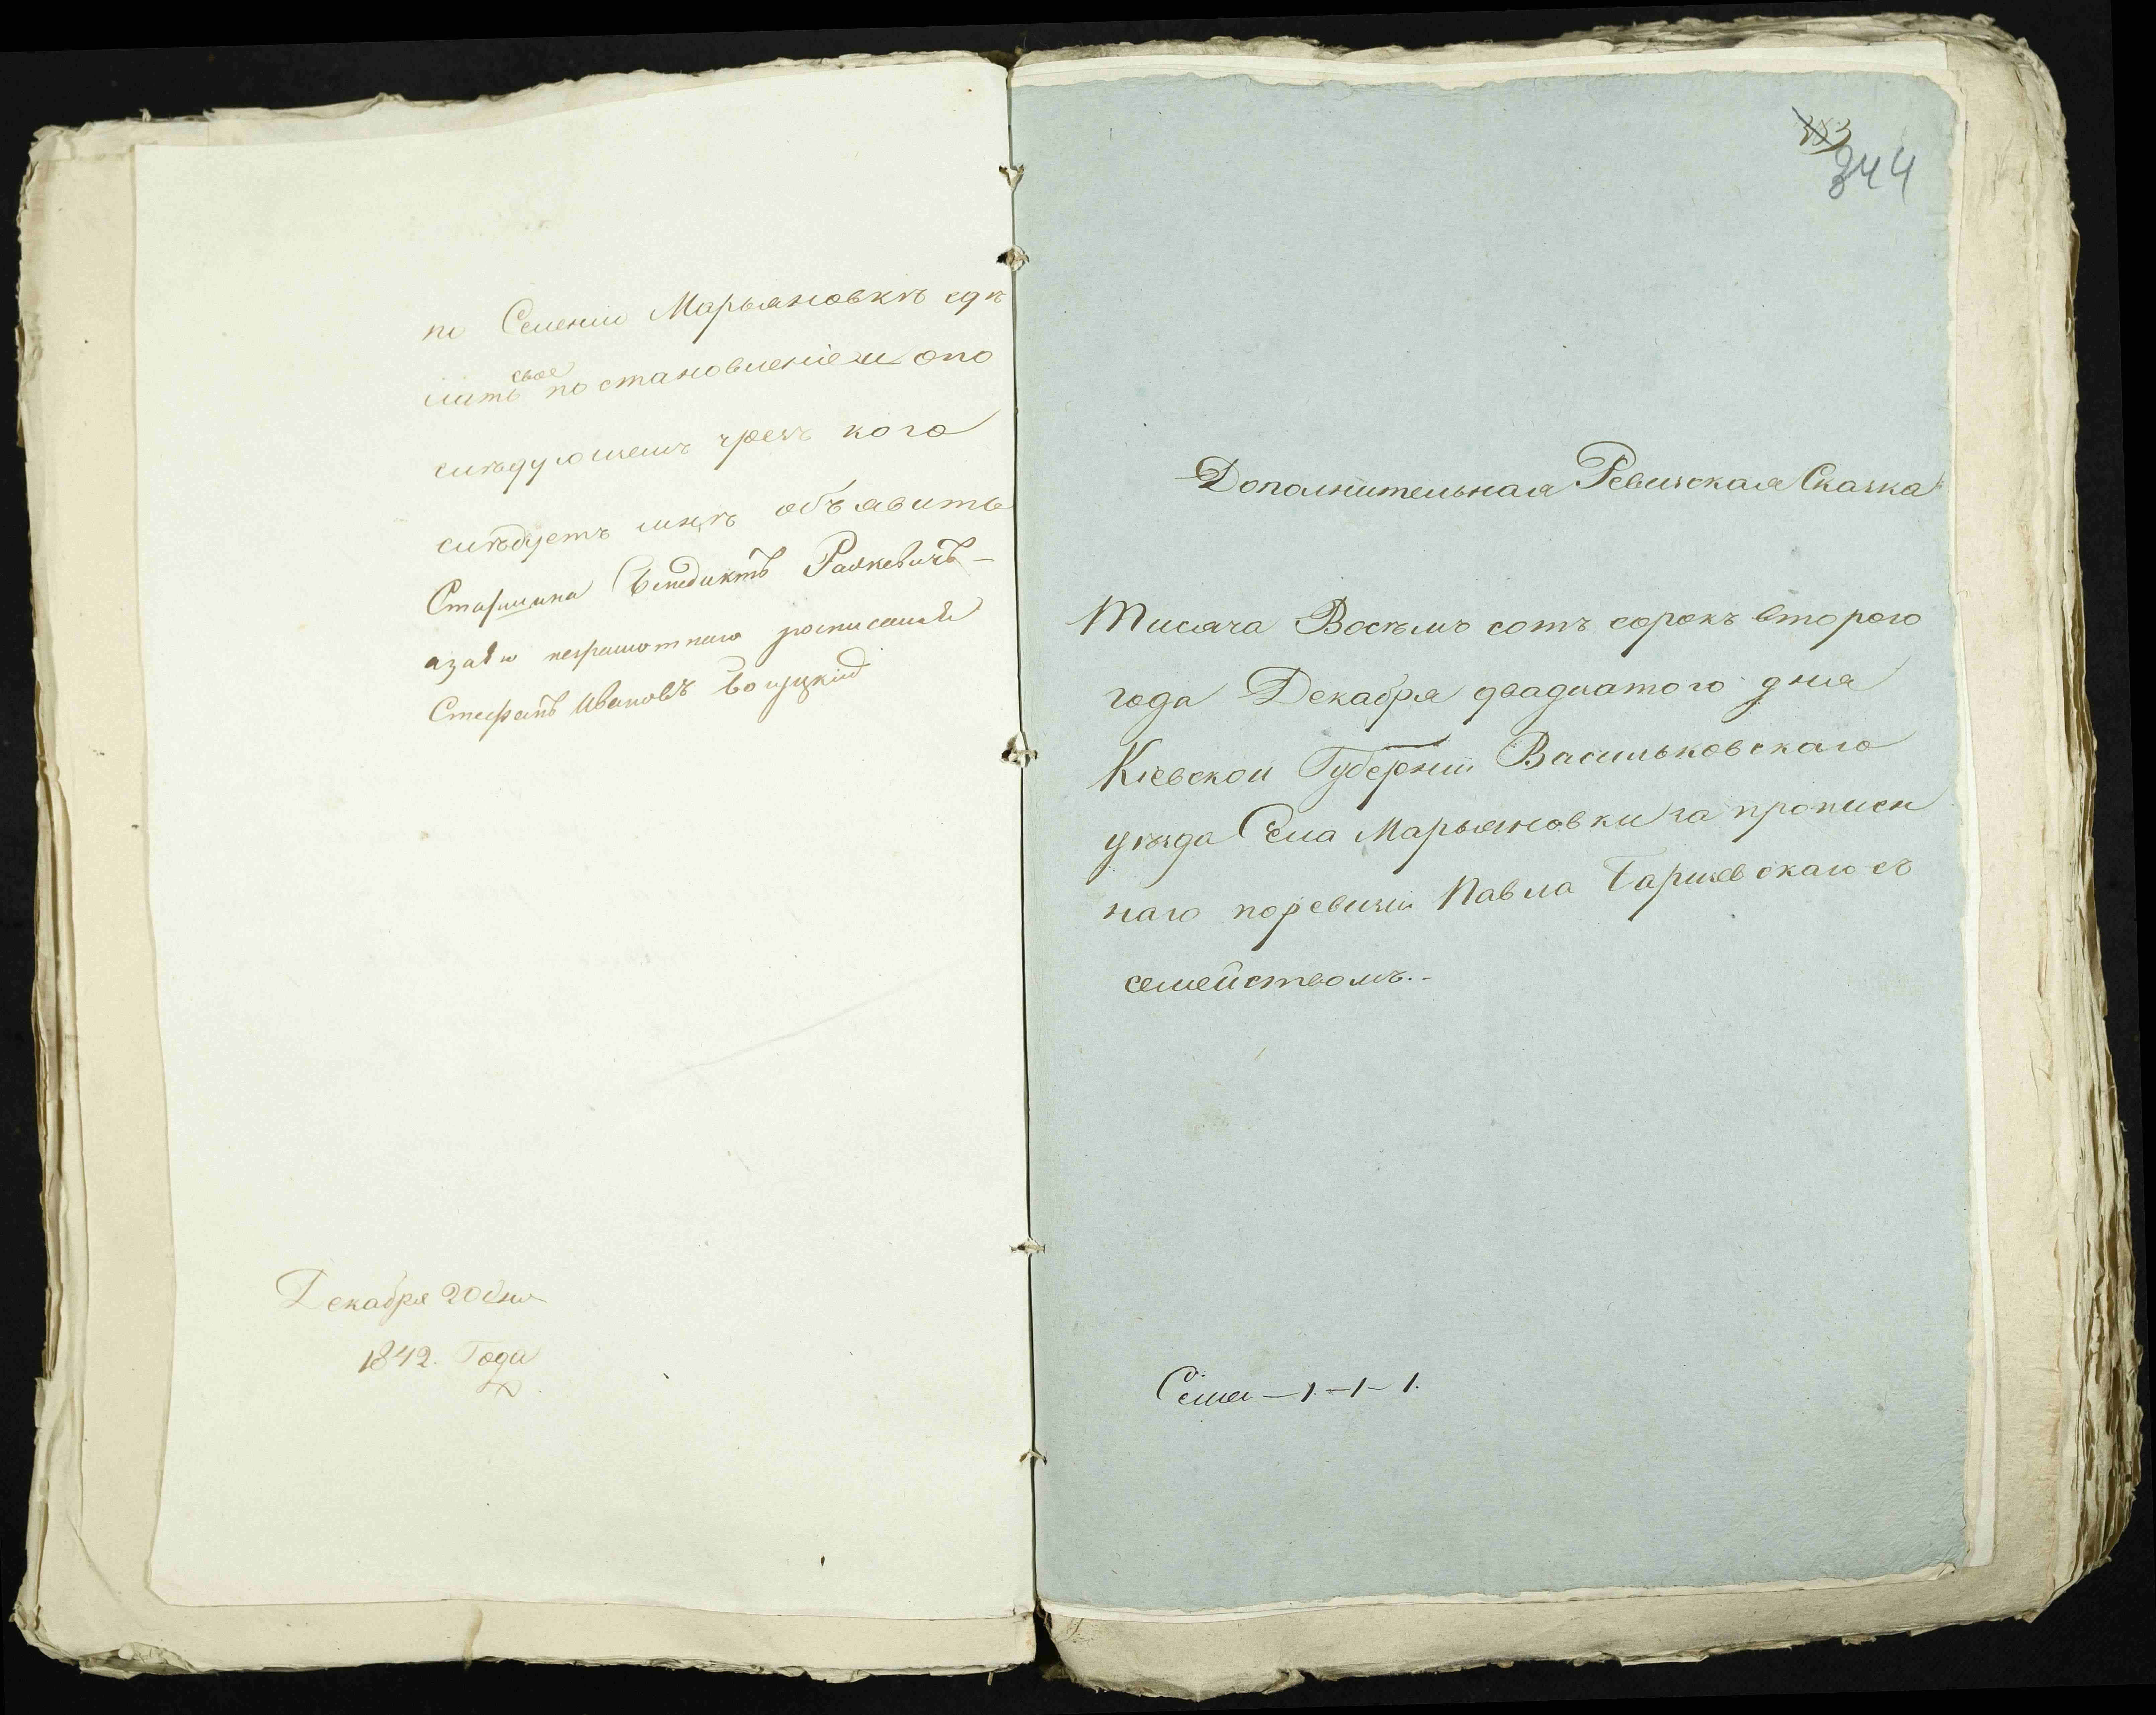 по Селении Марьяновкѣ здѣ
лать свое постановление и опо
слѣдующемъ чрезъ кого
слѣдуетъ мнѣ объявить
Старшина Бенедиктъ Рачкевичъ
азаго неграмотнаго росписался
Стефанъ Ивановъ
Декабря 20 дня
1842. Года
353
344
Дополнительная Ревизская Сказка
Тисяча Восемь сотъ сорокъ второго
года Декабря двадцатого дня
Кіевской Губерніи Васильковскаго
уѣзда Села Марьяновки за прописн
наго поревизіи Павла Гаршевскаго съ
семействомъ.
Семей — 1 — 1 — 1.